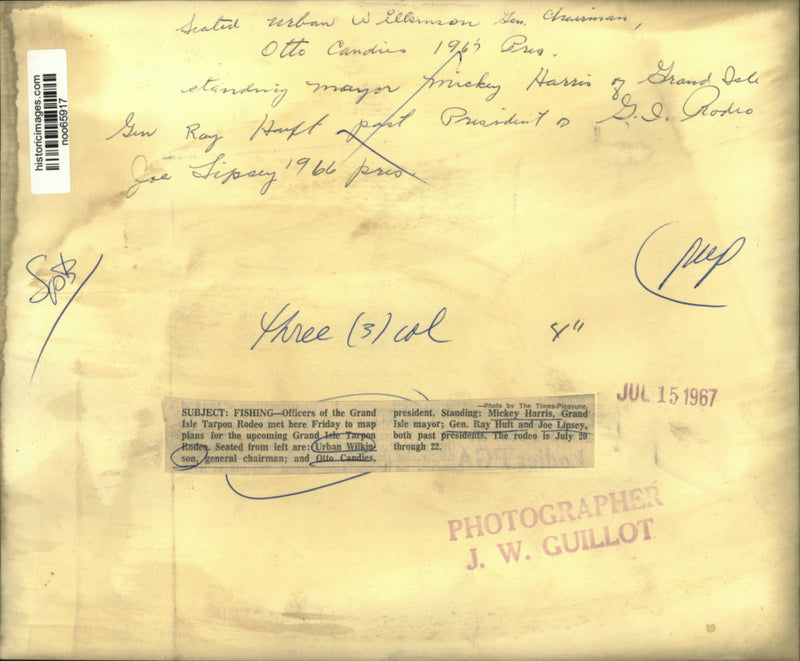 Seated Urban Wilkinson Gen. Chairman,
Otto Candies 1967 Pres.
standing mayor Mickey Harris of Grand Isle
Gen Ray Huft past President o G.I. Rodeo
Joe Lipsey 1966 pres.
historicimages.com
noo65917
Spts
three (3) col
8"
JUL 15 1967
SUBJECT: FISHING—Officers of the Grand
Isle Tarpon Rodeo met here Friday to map
plans for the upcoming Grand Isle Tarpon
Rodeo. Seated from left are: Urban Wilkin-
son, general chairman; and Otto Candies,
—Photo by The Times-Picayune.
president. Standing: Mickey Harris, Grand
Isle mayor; Gen. Ray Huft and Joe Lipsey,
both past presidents. The rodeo is July 20
through 22.
PHOTOGRAPHER
J. W. GUILLOT